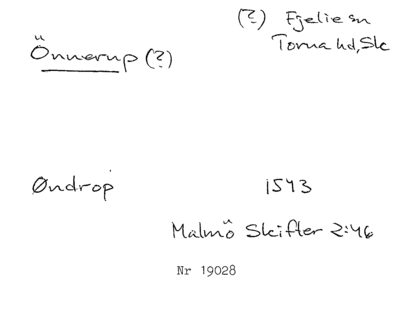 (?) Fjelie sn
Torna hd, Sk
Önnerup (?)
Øndrop 1543
Malmö Skifter 2:46
Nr 19028